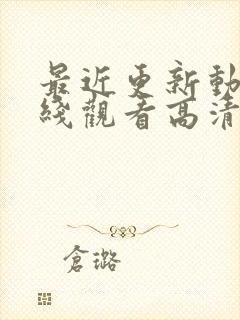 最近更新動
綫觀看高清
倉璐